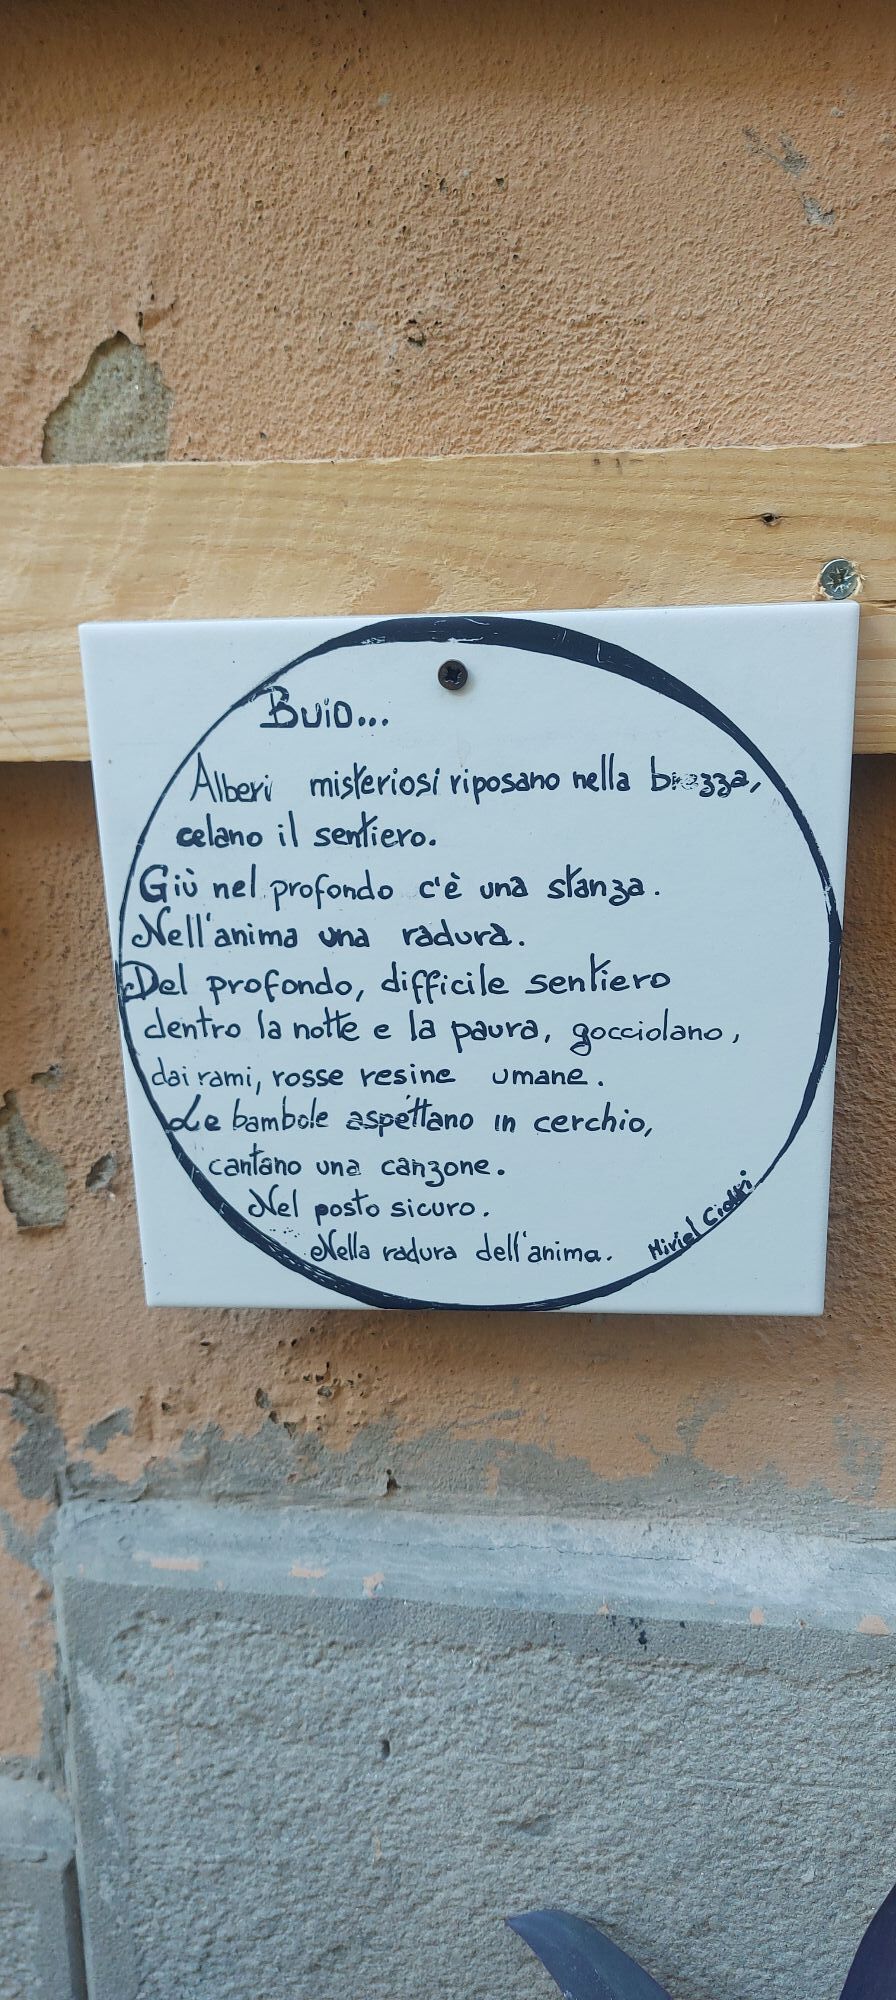 Buio...
Alberi misteriosi riposano nella brezza,
celano il sentiero.
Giù nel profondo c'è una stanza.
Nell'anima una radura.
Del profondo, difficile sentiero
dentro la notte e la paura, gocciolano,
dai rami, rosse resine umane.
Le bambole aspettano in cerchio,
cantano una canzone.
Nel posto sicuro.
Nella radura dell'anima.